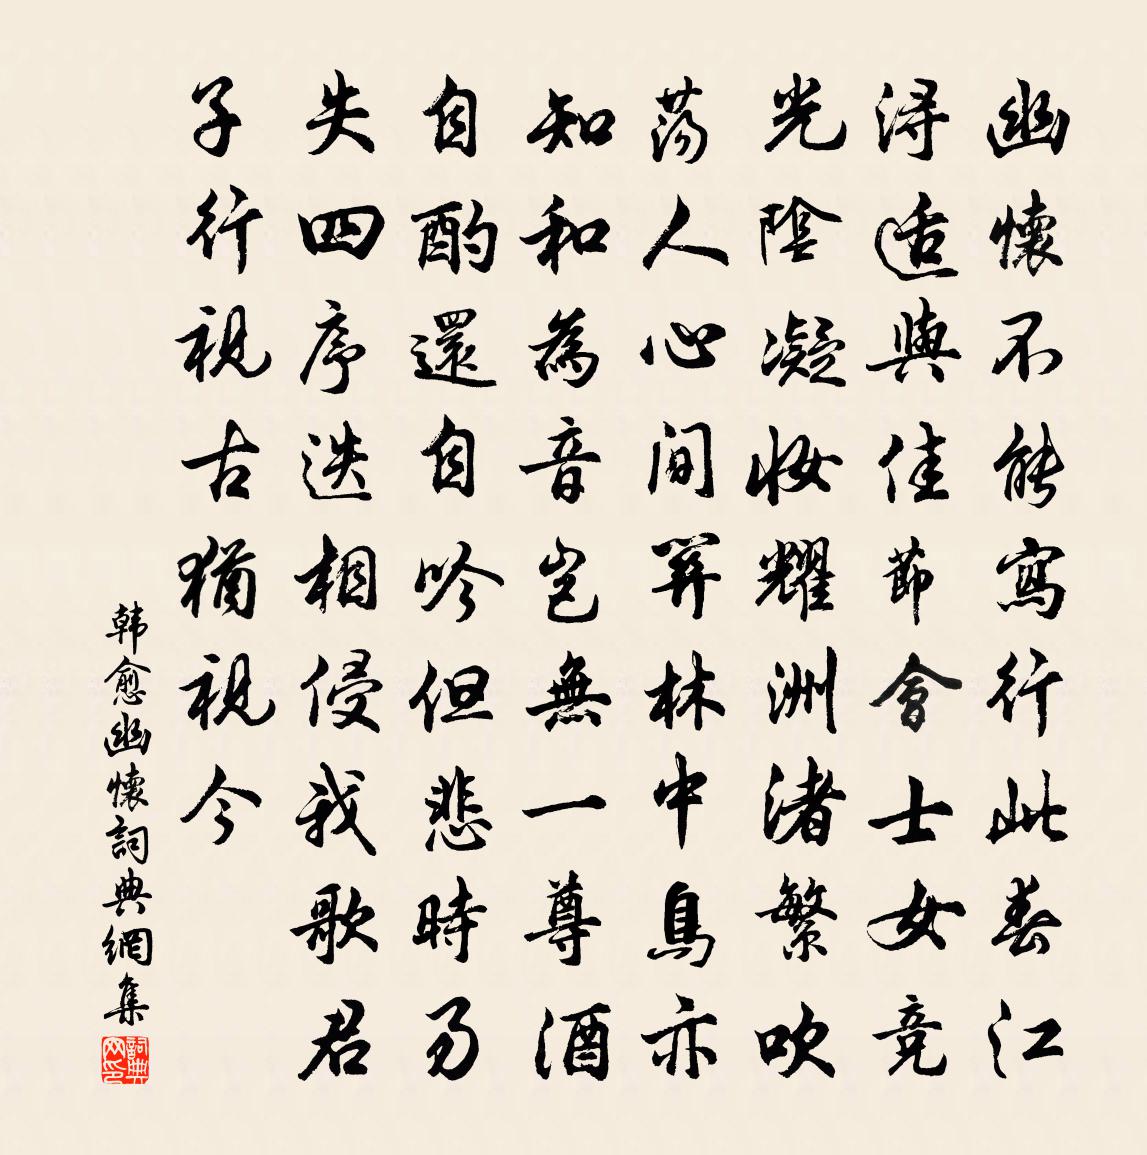 幽懷不能寫行此春江
潯適與佳節會士女競
光陰凝妝耀洲渚繁吹
蕩人心間關林中鳥亦
知和為音豈無一尊酒
自酌還自吟但悲時易
失四序迭相侵我歌君
子行視古猶視今
韩愈幽懷詞典網集
詞典网印